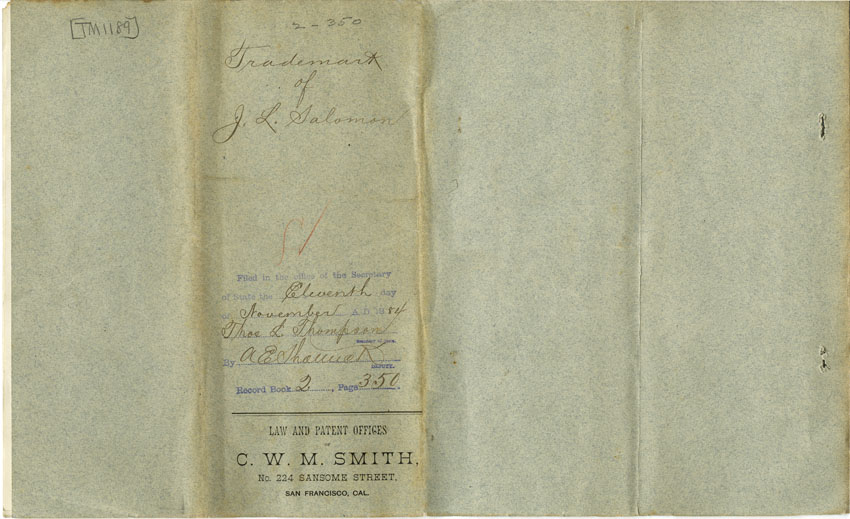 [TM1189]
2-350
Trademark
of
J. L. Salomon
Filed in the office of the Secretary
of State the Eleventh day
of November A.D. 1884
Thos L. Thompson
Secretary of State.
By A E Shattuck
Deputy.
Record Book 2, Page 350.
LAW AND PATENT OFFICES
OF
C. W. M. SMITH,
No. 224 SANSOME STREET,
SAN FRANCISCO, CAL.